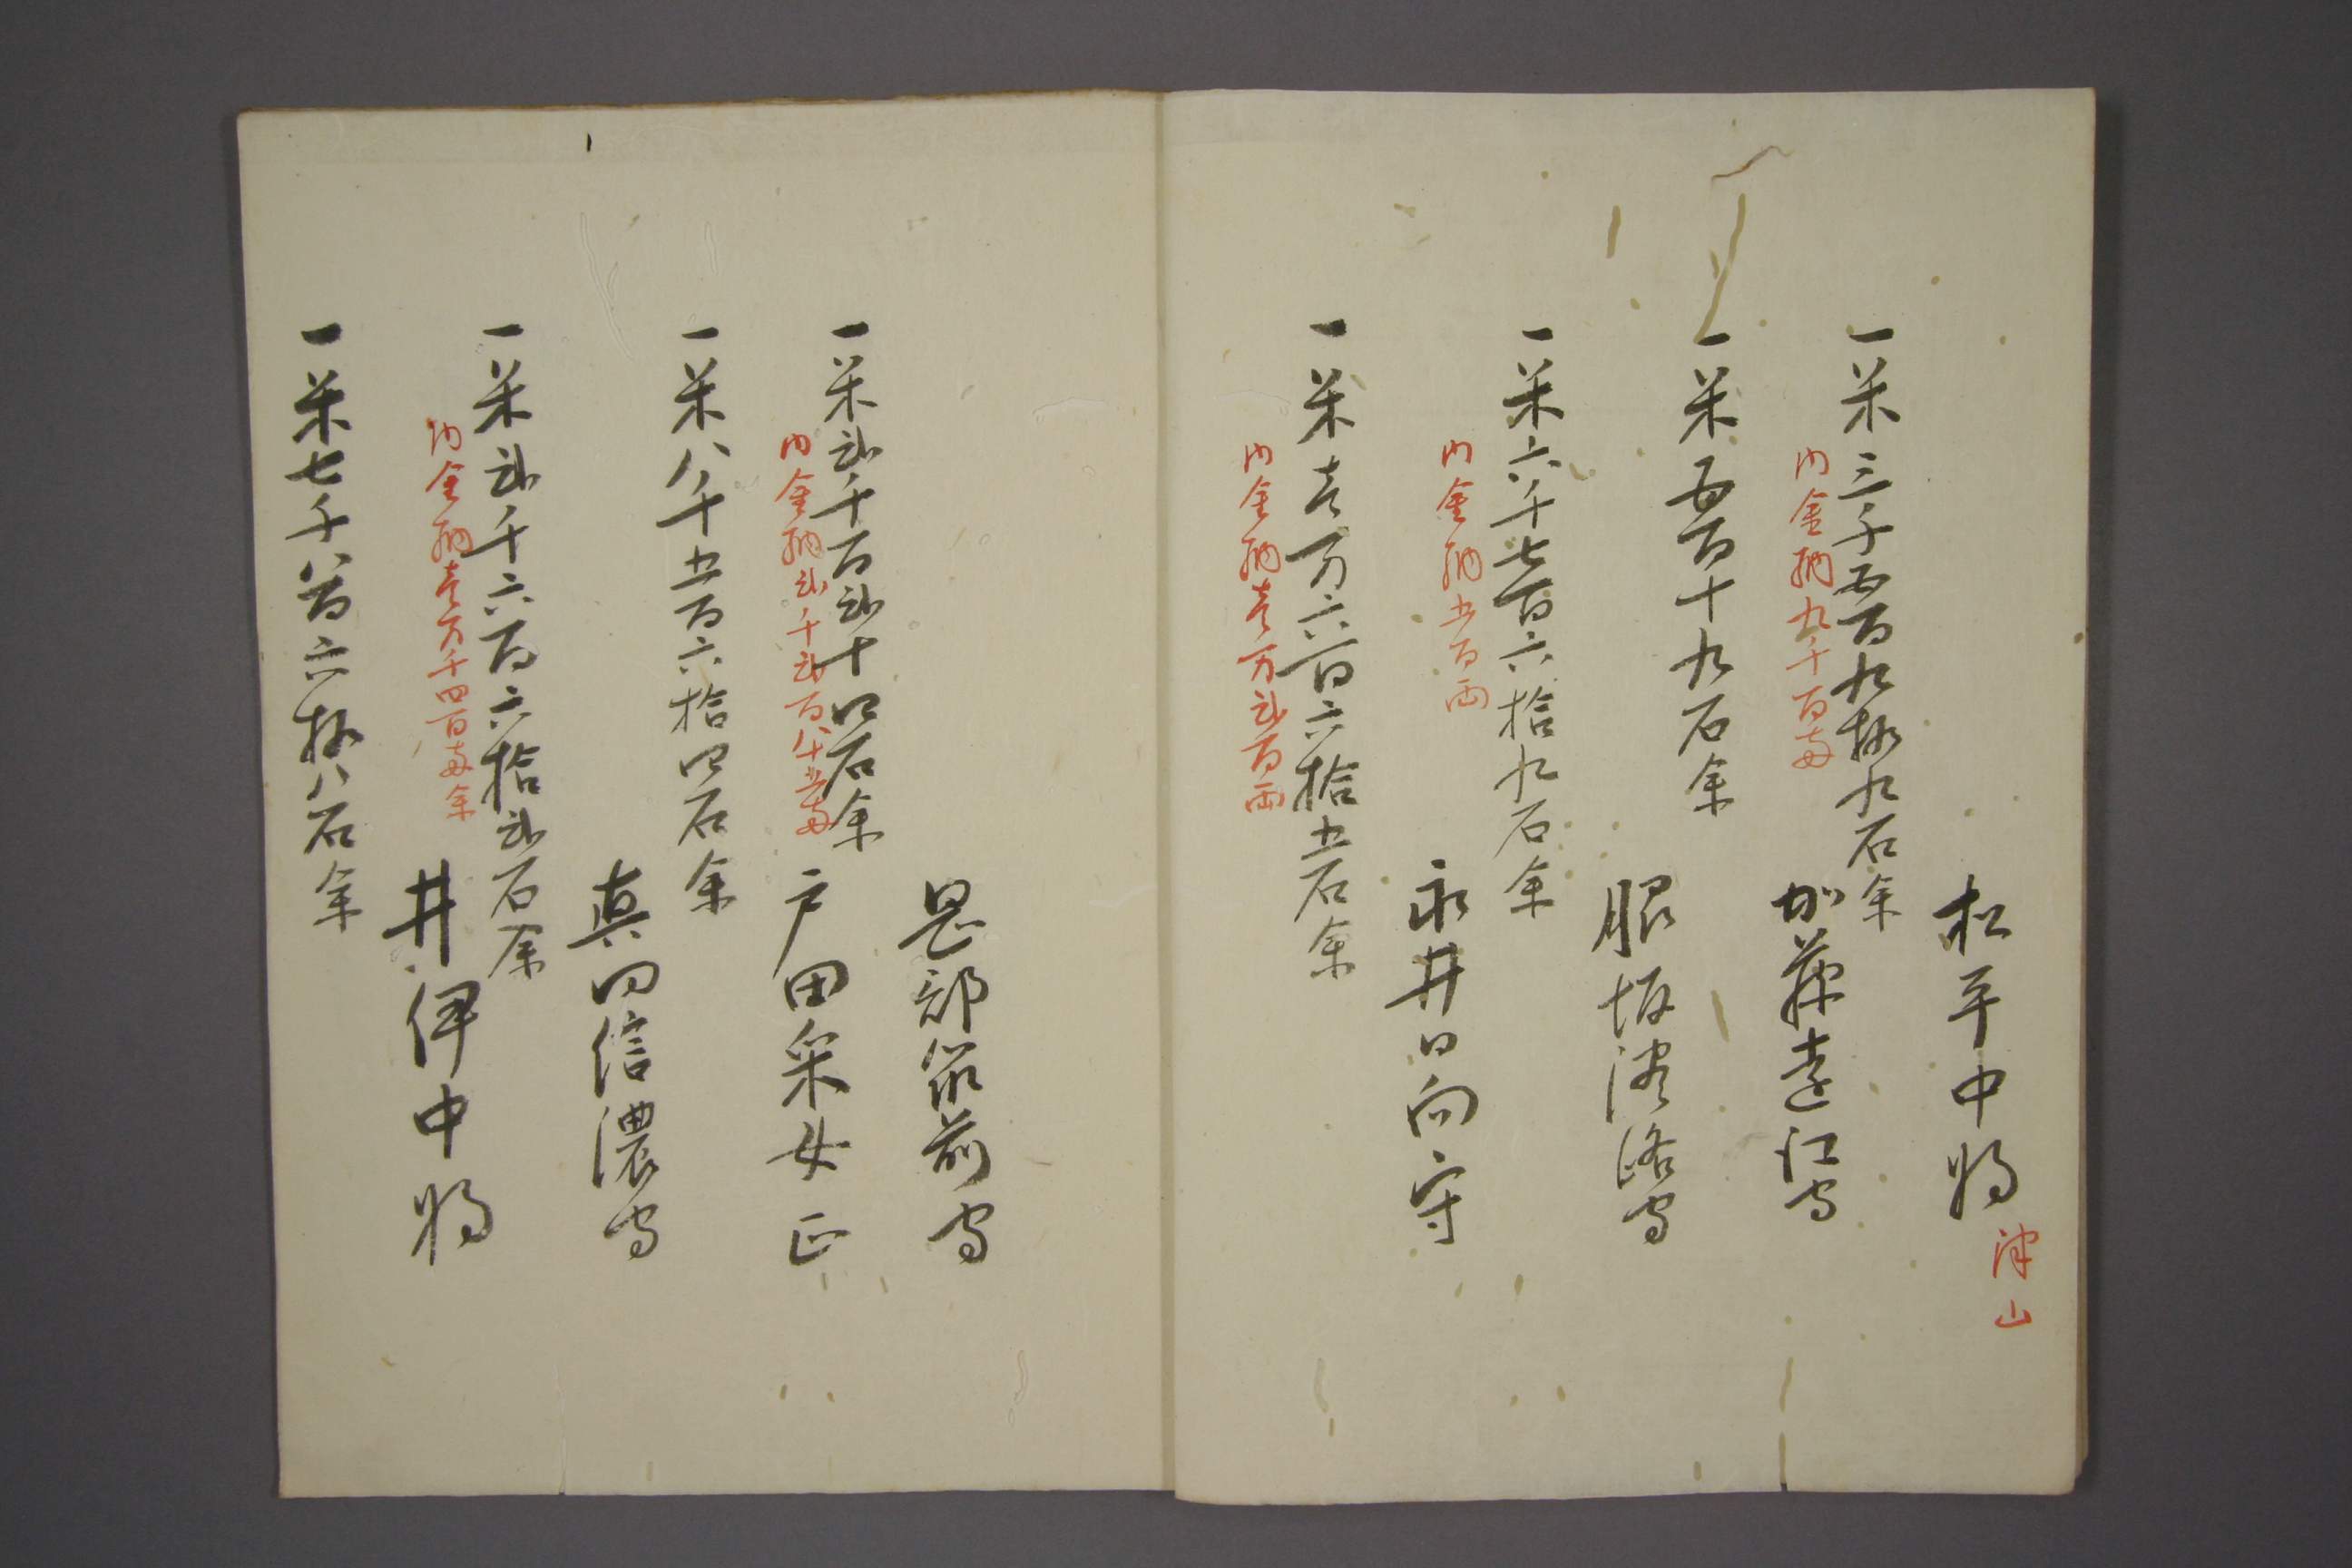 松平中将
津山
一米三千五百九拾九石余
内金納九千百両
加藤遠江守
一米五百十九石余
脇坂淡路守
一米六千七百六拾九石余
内金納五百両
永井日向守
一米壱万六百六拾五石余
内金納壱万弐百両
岡部筑前守
一米弐千百弐十四石余
内金納弐千弐百八十五両
戸田采女正
一米八千五百六拾四石余
真田信濃守
一米弐千六百六拾弐石余
内金納壱万千四百両余
井伊中将
一米七千八百六拾八石余